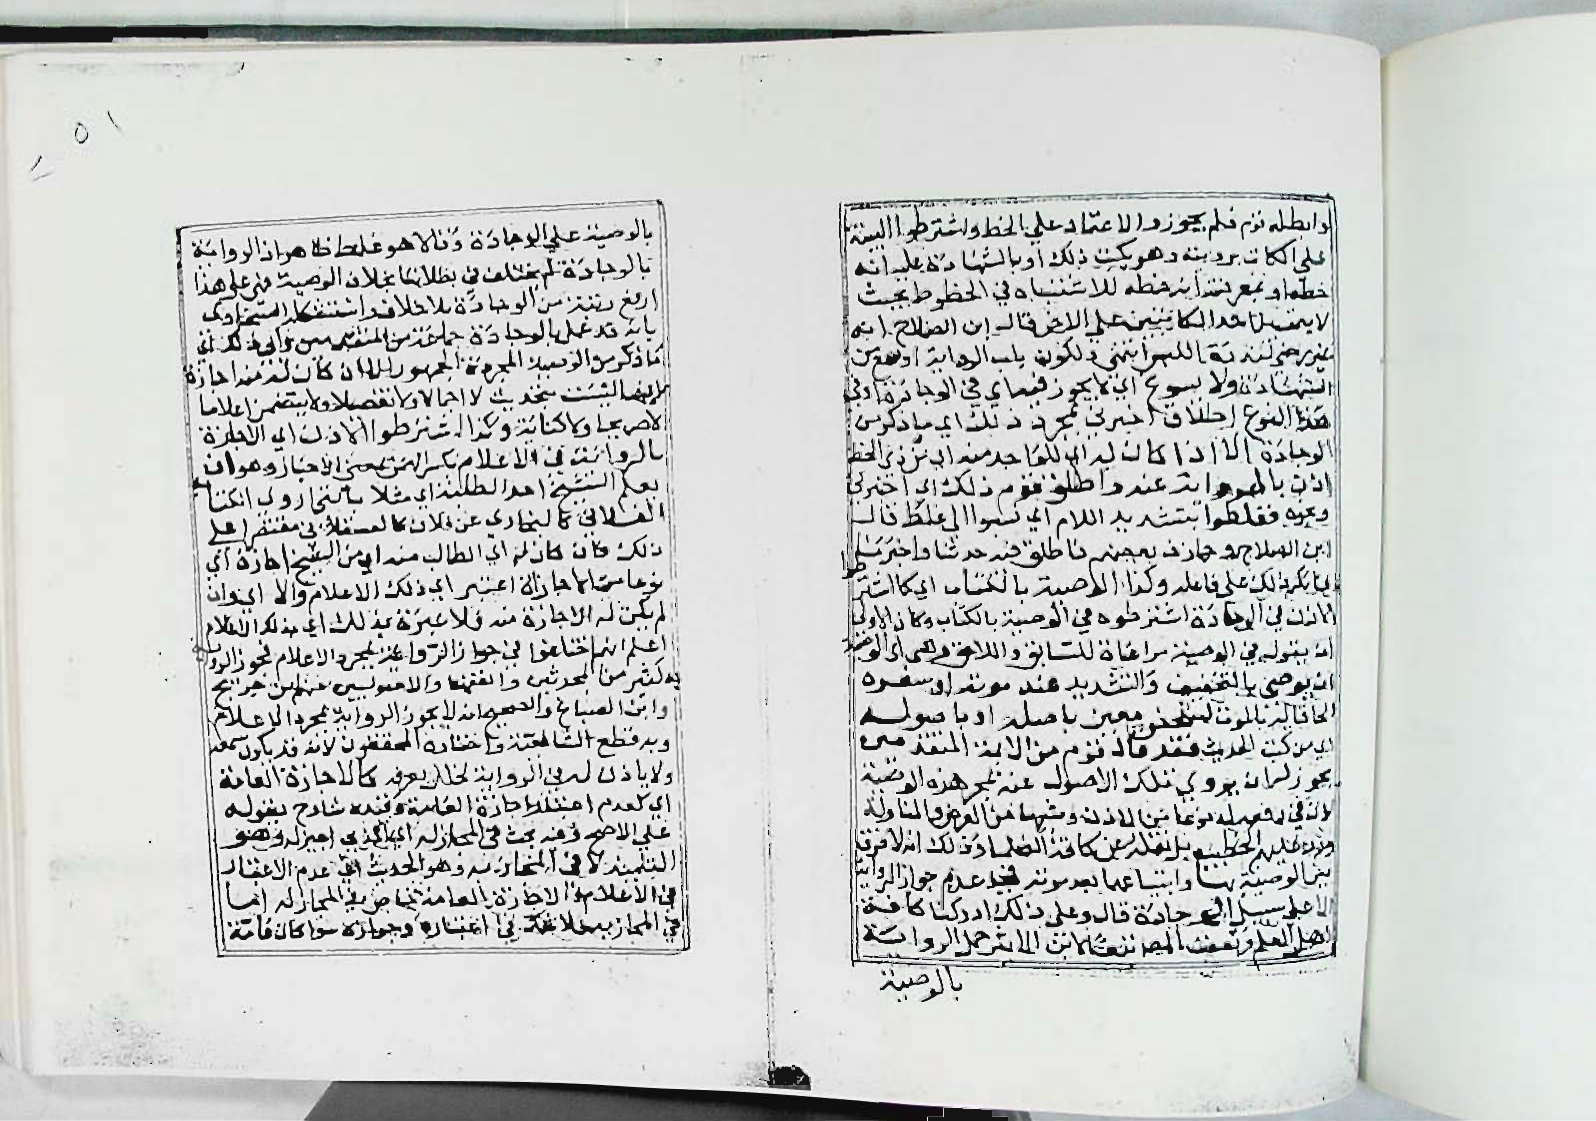 وابطله قوم فلم يجوزوا الاعتماد على الخط واشترطوا البينة
على الكاتب برويته وهو يكتب ذلك او بالشهادة عليه انه
خطه او بمعرفته انه خطه للاشتباه في الخطوط بحيث
لا يتميز احد الكاتبين على الاخر قال ابن الصلاح انه
غير مرضي لندرة اللبس انتهى ولكون باب الرواية اوسع من
الشهادة ولا يسوغ اي لا يجوز فيه اي في الوجادة اوفي
هذا النوع اطلاق اخبرني بمجرد ذلك اي ما ذكر من
الوجادة الا اذا كان له اي للواجد منه اي من ذي الخط
اذن بالرواية عنه واطلق قوم ذلك اي اخبرني
وغيره فغلطوا بتشديد اللام اي نسبوا الى غلط قال
ابن الصلاح وجازف بعضهم فاطلق فيه حدثنا واخبرنا
اي انكر ذلك على فاعله وكذا الوصية بالكتاب اي كما اشترطوا
الاذن في الوجادة اشترطوه في الوصية بالكتاب وكان الاولى
ان يقول في الوصية مراعاة للسابق واللاحق وهي اي الوصية
ان يوصي بالتخفيف والتشديد عند موته او سفره
لشخص معين باصله او باصوله
اي من كتب الحديث فقد قال قوم من الايمة المتقدمين
يجوز له ان يروي تلك الاصول عنه بمجرد هذه الوصية
لان في دفعها له نوعا من الاذن وشبها من العرض والمناولة
ورده عليهم الخطيب بل نقله عن كافة العلماء وذلك انه لا فرق
بين الوصية بها وابتياعها بعد موته في عدم جواز الرواية
الا على سبيل الوجادة قال وعلى ذلك ادركنا كافة
اهل العلم وتعقب المصنف تبعا لابن الاثير حمل الرواية
بالوصية
٢٥١
بالوصية على الوجادة وقالا هو غلط ظاهر اذ الرواية
بالوجادة لم يختلف في بطلانها بخلاف الوصية فهي على هذا
ارفع رتبة من الوجادة بلا خلاف واستشكله السخاوي
بانه قد عمل بالوجادة جماعة من المتقدمين وابى ذلك اي
ما ذكر من الوصية المجردة الجمهور الا ان كان له منه اجازة
لانها ليست بتحديث لا اجمالا ولا تفصيلا ولا يتضمن اعلاما
لا صريحا ولا كناية وكذا اشترطوا الاذن اي الاجازة
بالرواية في الاعلام بكسر الهمزة بمعنى الاخبار وهو ان
يعلم الشيخ احد الطلبة اي مثلا بانني اروي الكتاب
الفلاني كالبخاري عن فلان كالعسقلاني مقتصرا على
ذلك فان كان له اي الطالب منه اي من الشيخ اجازة اي
نوعا من الاجازة اعتبر اي ذلك الاعلام والا اي وان
لم يكن له الاجازة منه فلا عبرة بذلك اي بذلك الاعلام
اعلم انهم اختلفوا في جواز الرواية بمجرد الاعلام فجوز الرواية
به كثير من المحدثين والفقهاء والاصوليين منهم ابن جريج
وابن الصباغ والصحيح انه لا يجوز الرواية بمجرد الاعلام
وبه قطع الشافعية واختاره المحققون لانه قد يكون سمعه
ولا ياذن له في الرواية لخلل يعرفه كالاجازة العامة
اي كعدم اعتبار اجازة العامة وقيده شارح بقوله
على الاصح وفيه بحث في المجاز له اي الذي اجيز له وهو
التلميذ لا في المجاز به وهو الحديث اي عدم الاعتبار
في الاعلام والاجازة العامة انما هو في المجاز له اما
في المجاز به فلا شك في اعتباره وجوازه سواء كان عامة